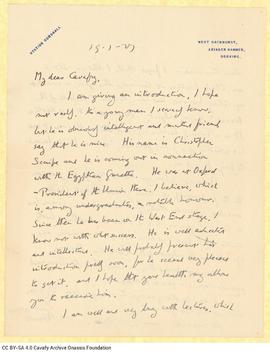 STATION GOMSHALL
WEST HACKHURST,
ABINGER HAMMER,
DORKING.
19-1-27
My dear Cavafy,
I am giving an introduction, I hope
not rashly, to a young man I scarcely know,
but he is obviously intelligent and mutual friends
say that he is nice. His name is Christopher
Scaife and he is coming out in connection
with the Egyptian Gazette. He was at Oxford
– President of the Union there, I believe, which
is, among undergraduates, a notable honour.
Since then he has been on the West End stage, I
know not with what success. He is well educated
and intellectual. He will probably present his
introduction pretty soon, for he seemed very pleased
to get it, and I hope that your health may allow
you to receive him.
I am well and very busy with lectures, which
CC BY-SA 4.0 Cavafy Archive Onassis Foundation